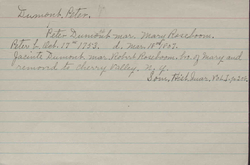 Dumont, Peter.
Peter Dumont mar. Mary Roseboom.
Peter b. Oct. 12th 1753. d. Mar. 18th
Jacinte Dumont mar. Robert Roseboom, bro. of Mary and
removed to Cherry Valley, N.Y.
Som. Hist. Quar. Vol. 5,